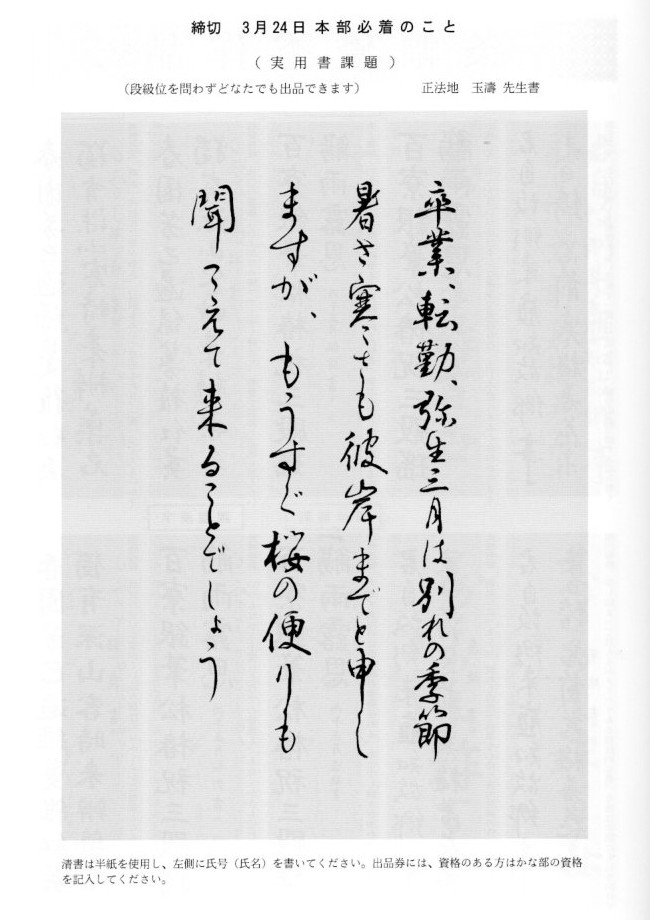 締切 3月24日本部必着のこと
（実用書課題）
（段級位を問わずどなたでも出品できます） 正法地 玉濤 先生書
卒業、転勤、弥生三月は別れの季節
暑さ寒さも彼岸までと申し
ますが、もうすぐ桜の便りも
聞こえて来ることでしょう
清書は半紙を使用し、左側に氏号（氏名）を書いてください。出品券には、資格のある方はかな部の資格
を記入してください。